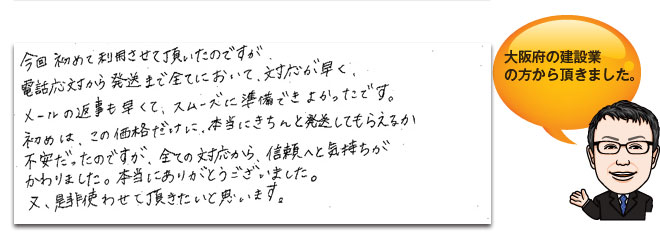 今回 初めて利用させて頂いたのですが
電話応対から発送まで全てにおいて、対応が早く、
メールの返事も早くて、スムーズに準備できよかったです。
初めは、この価格だけに、本当にきちんと発送してもらえるか
不安だったのですが、全ての対応から、信頼へと気持ちが
かわりました。本当にありがとうございました。
又、是非使わせて頂きたいと思います。
大阪府の建設業
の方から頂きました。